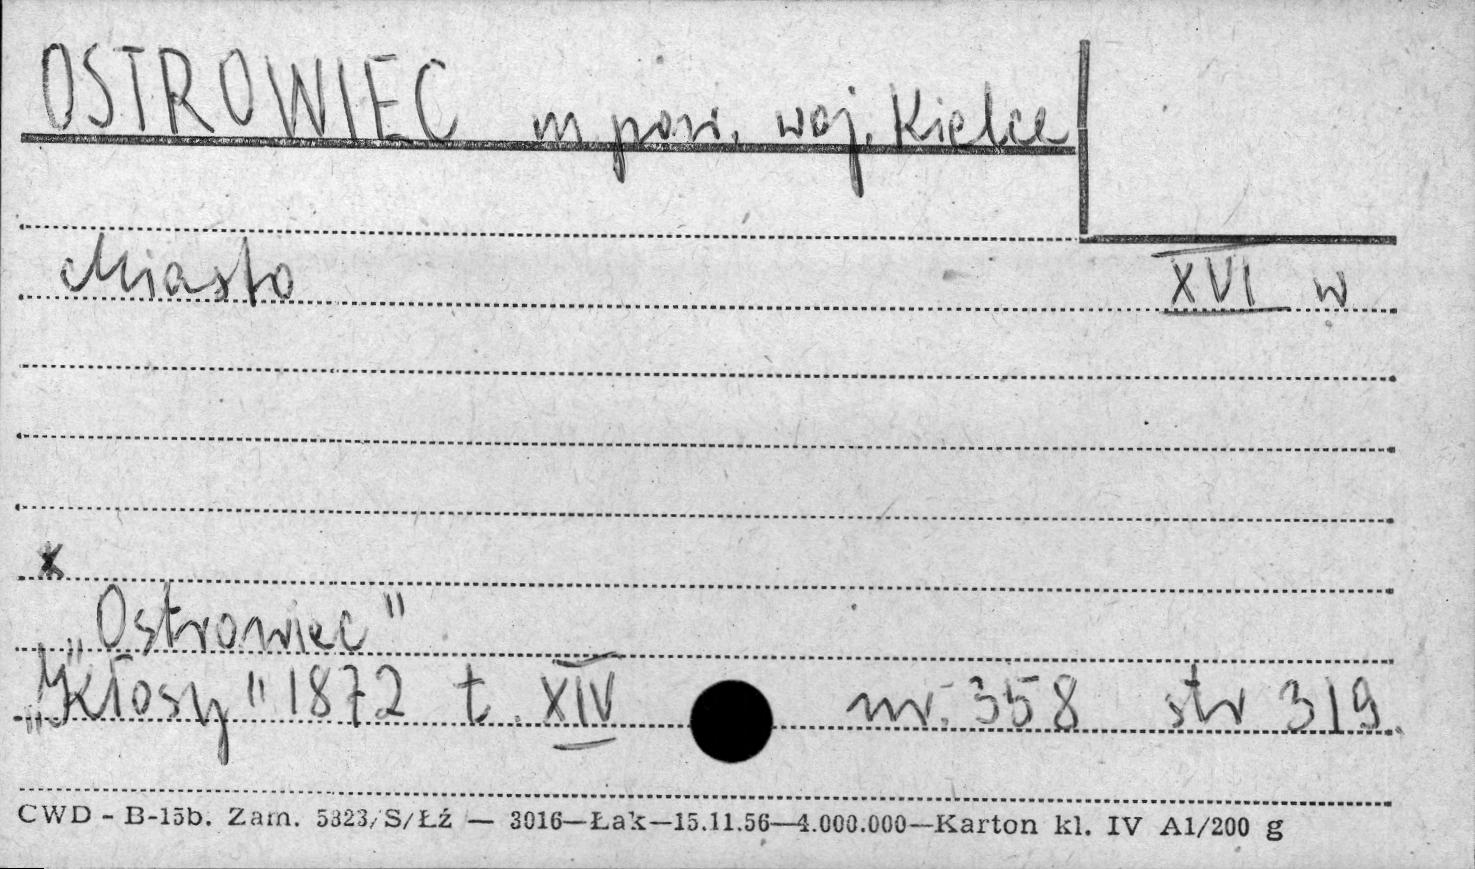 OSTROWIEC m. pow. woj. Kielce
Miasto XVI w
x
„Ostrowiec"
„Kłosy" 1872 t. XIV nr. 358 str 319.
CWD - B-15b. Zam. 5323/S/Łź — 3016—Łak—15.11.56—4.000.000—Karton kl. IV A1/200 g